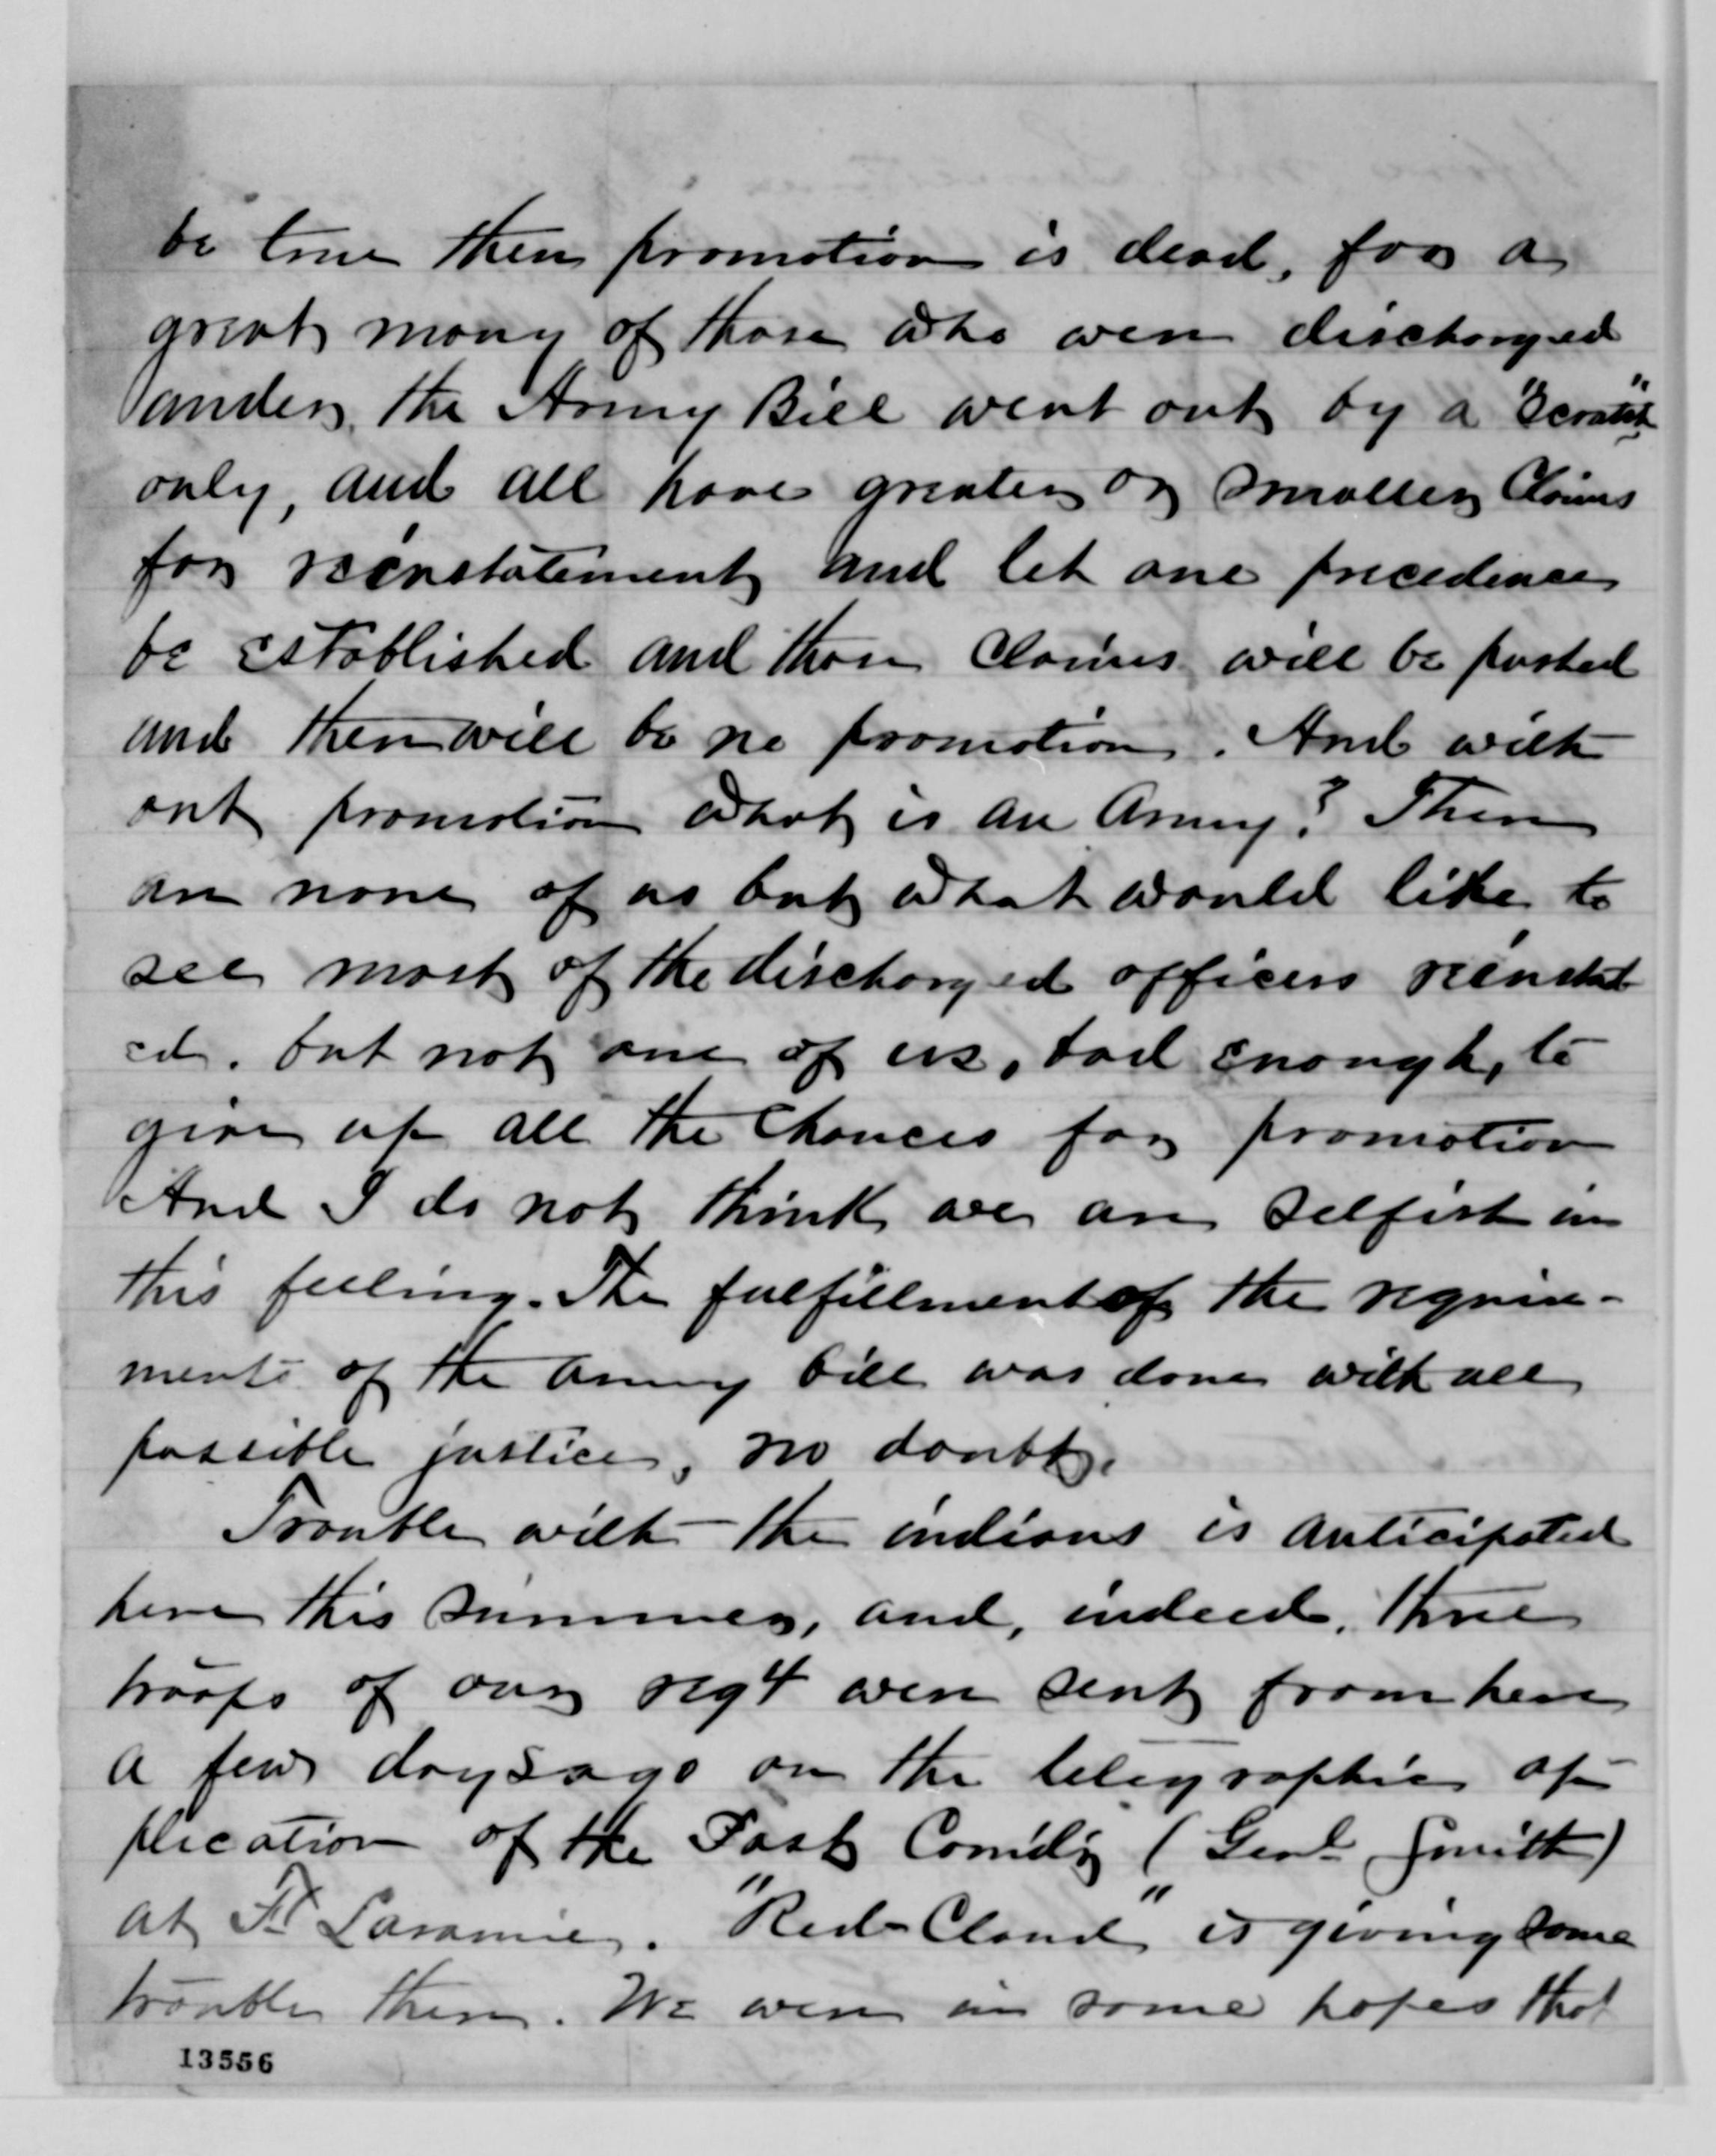 be true then promotion is dead, for a
great many of those who were discharged
under the Army Bill went out by a "Scratch"
only, and all have greater or smaller Claims
for reinstatement and let one precedence
be established and those Claims will be pushed
and there will be no promotion. And with
out promotion what is an Army? There
are none of us but what would like to
see most of the discharged officers reinstat
ed. but not one of us, bad enough, to
give up all the Chances for promotion
And I do not think we are selfish in
this feeling. The fulfillment of the require-
ments of the Army bill was done with all
possible justice, no doubt.
Trouble with the indians is anticipated
here this summer, and, indeed, three
troops of our regt were sent from here
a few days ago on the telegraphic ap
plication of the Post Comd'g (Genl Smith)
at Ft Laramie. "Red-Cloud" is giving some
trouble there. We were in some hopes that
13556